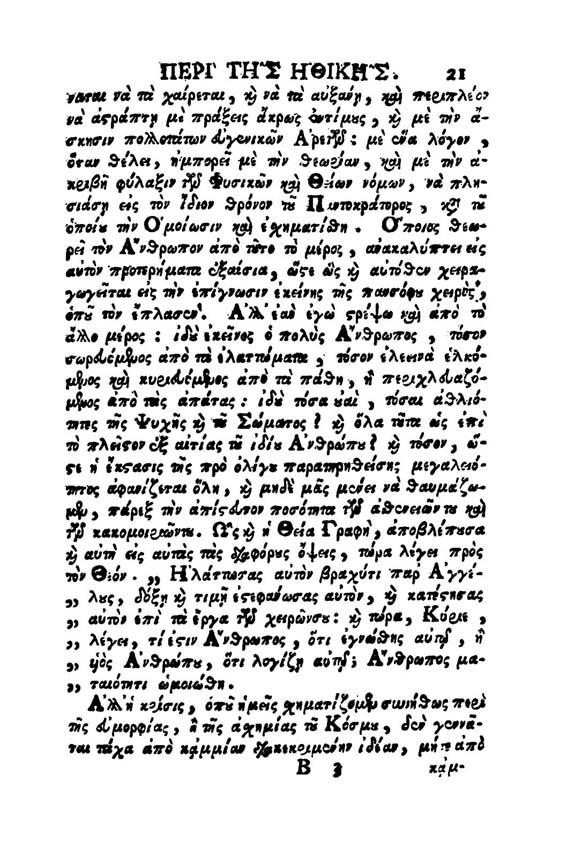 ΠΕΡΙ' ΤΗ͂Σ ΗΘΙΚΗ͂Σ. 21
ναται νὰ τὰ χαίρεται, ϗ νὰ τὰ αὐξάνῃ, καὶ περιπλέον
νὰ ἀστράπτῃ μὲ πράξεις ἄκρως ἐντίμους, ϗ μὲ τὴν ἄ-
σκησιν πολλοτάτων εὐγενικῶν Ἀρετῶν: μὲ ἕνα λόγον,
ὅταν θέλει, ἠμπορεῖ μὲ τὴν θεωρίαν, καὶ μὲ τὴν ἀ-
κριβῆ φύλαξιν τῶν Φυσικῶν καὶ Θείων νόμων, νὰ πλη-
σιάσῃ εἰς τὸν ἴδιον θρόνον τοῦ Παντοκράτορος, καὶ τοῦ
ὁποίου τὴν Ὁμοίωσιν καὶ ἐχηματίθη. Ὅποιος θεω-
ρεῖ τὸν Ἄνθρωπον ἀπὸ τοῦτο τὸ μέρος, ἀνακαλύπτει εἰς
αὐτὸν προτερήματα ἐξαίσια, ὥστε ὡς ϗ αὐτόθεν χειρα-
γωγεῖται εἰς τὴν ἐπίγνωσιν ἐκείνης τῆς πανσόφου χειρὸς,
ὁποῦ τὸν ἔπλασεν. Ἀλλ' ἐὰν ἐγὼ στρέψω καὶ ἀπὸ τὸ
ἄλλο μέρος: ἰδοὺ ἐκεῖνος ὁ πολὺς Ἄνθρωπος, τόσον
σωρευόμενος ἀπὸ τὰ ἐλαττώματα, τόσον ἐλεεινὰ ἑλκό-
μενος καὶ κυριευόμενος ἀπὸ τὰ πάθη, ἢ περιχλευαζό-
μενος ἀπὸ τὰς ἀπάτας: ἰδοὺ τόσα οὐαὶ, τόσαι ἀθλιό-
τητες τῆς Ψυχῆς ϗ τοῦ Σώματος! ϗ ὅλα ταῦτα ὡς ἐπὶ
τὸ πλεῖστον ἐξ αἰτίας τοῦ ἰδίου Ἀνθρώπου! ϗ τόσον, ὥ-
στε ἡ ἔκστασις τῆς πρὸ ὀλίγου παρατηρηθείσης μεγαλειό-
τητος ἀφανίζεται ὅλη, ϗ μηδὲ μᾶς μένει νὰ θαυμάζω-
μεν, πάρεξ τὴν ἀπίστευτον ποσότητα τῶν ἀσθενειῶν του καὶ
τῶν κακομοιριῶν του. Ὡς ϗ ἡ Θεία Γραφὴ, ἀποβλέπουσα
ϗ αὐτὴ εἰς αὐτὰς τὰς διαφόρους ὄψεις, τώρα λέγει πρὸς
τὸν Θεόν. „ Ἠλάττωσας αὐτὸν βραχύτι παρ' Ἀγγέ-
„ λους, δόξῃ ϗ τιμῇ ἐστεφάνωσας αὐτὸν, ϗ κατέστησας
„ αὐτὸν ἐπὶ τὰ ἔργα τῶν χειρῶν σου: ϗ τώρα, Κύριε,
„ λέγει, τί ἐστιν Ἄνθρωπος, ὅτι ἐγνώσθης αὐτῷ, ἢ
„ υἱὸς Ἀνθρώπου, ὅτι λογίζῃ αὐτῷ; Ἄνθρωπος μα-
„ ταιότητι ὡμοιώθη.
Ἀλλ' ἡ κρίσις, ὁποῦ ἡμεῖς σχηματίζομεν συνήθως περὶ
τῆς εὐμορφίας, ἢ τῆς ἀσχημίας τοῦ Κόσμου, δὲν γεννᾶ-
ται τάχα ἀπὸ καμμίαν διακεκριμένην ἰδέαν, μήτε ἀπὸ
B 3 καμ-